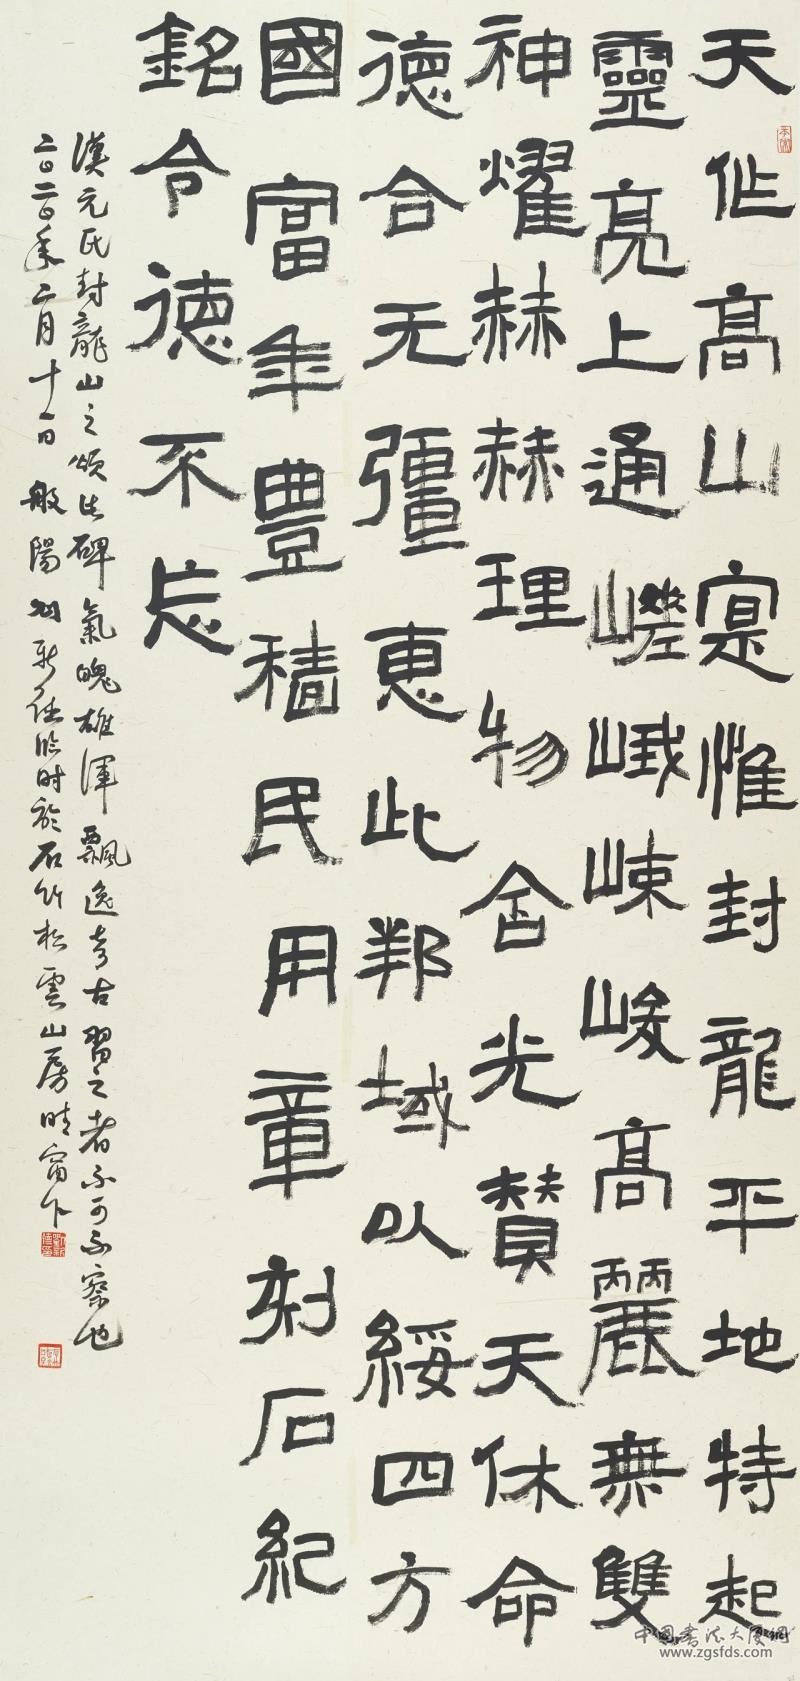 天作高山寔惟封龍平地特起
靈亮上通嵯峨崠峻高麗無雙
神燿赫赫理物含光贊天休命
德合无彊惠此邦域以綏四方
國富年豊穡民用章刻石紀
銘令德不忘
漢元氏封龍山之頌此碑氣魄雄渾飄逸考古習之者不可不察也
二〇二〇年二月十一日般陽劉新德臨時於石竹松雲山房晴窗下
中国书法大厦网
www.zgsfds.com